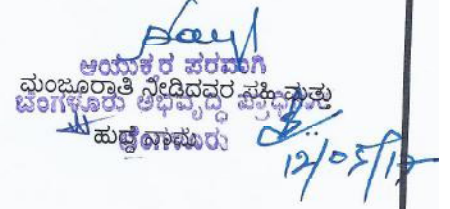 ಆಯುಕ್ತರ ಪರವಾಗಿ
ಮಂಜೂರಾತಿ ನೀಡಿದವರ ಸಹಿ ಮತ್ತು
ಬೆಂಗಳೂರು ಅಭಿವೃದ್ಧಿ ಪ್ರಾಧಿಕಾರ
ಹುದ್ದೆ ನಾಮ
ಬೆಂಗಳೂರು
12/05/17